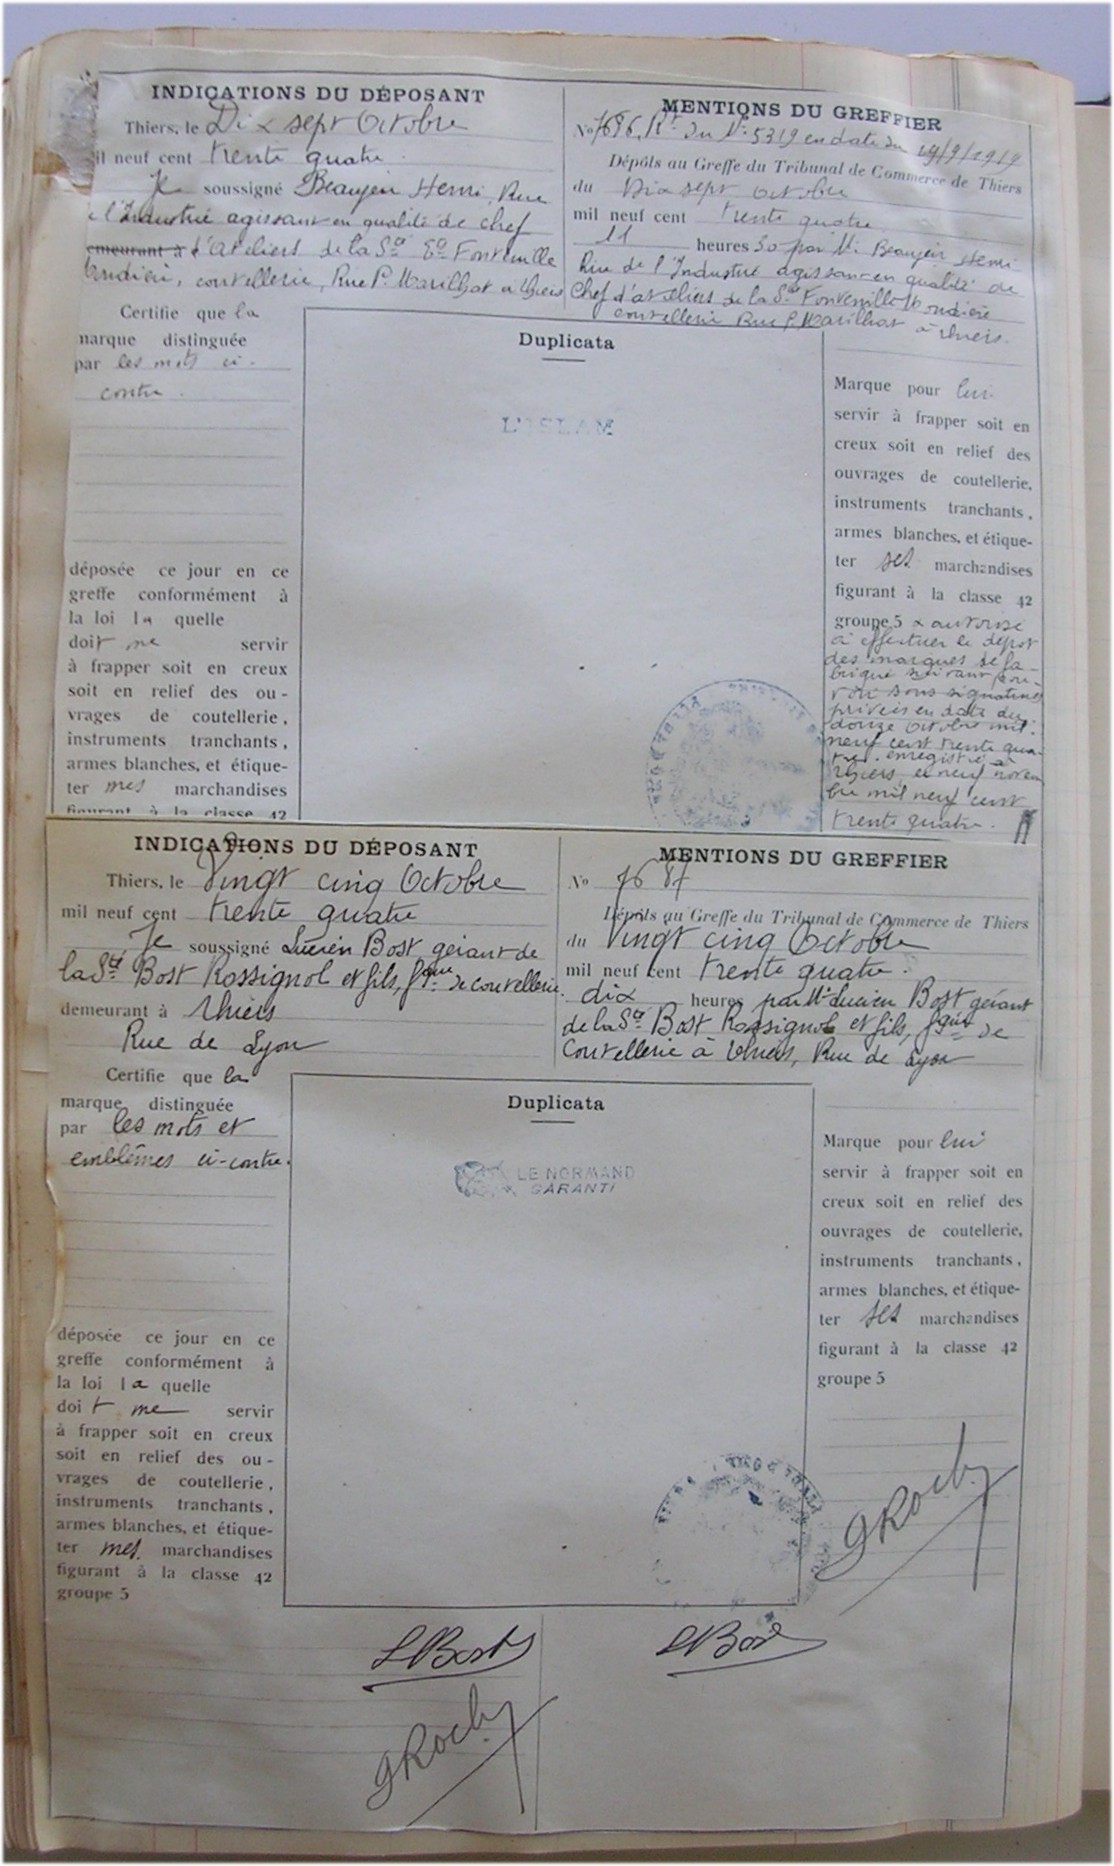 INDICATIONS DU DÉPOSANT
Thiers, le Dix sept Octobre
il neuf cent trente quatre.
Je soussigné Beaujeu Henri, Rue
l'Industrie agissant en qualité de chef
emeurant à d'ateliers de la Sté Fontenille
ondière, coutellerie, Rue P. Marilhat à Thiers
Certifie que la
marque distinguée
par les mots ci-
contre.
déposée ce jour en ce
greffe conformément à
la loi la quelle
doit me servir
à frapper soit en creux
soit en relief des ou-
vrages de coutellerie,
instruments tranchants,
armes blanches, et étique-
ter mes marchandises
figurant à la classe 42
MENTIONS DU GREFFIER
No 7686, Rt du No 5319 en date du 19/9/1919
Dépôts au Greffe du Tribunal de Commerce de Thiers
du Dix sept octobre
mil neuf cent trente quatre
11 heures 30 par M. Beaujeu Henri
Rue de l'Industrie agissant en qualité de
Chef d'ateliers de la Sté Fontenille ondière
coutellerie Rue P. Marilhat à Thiers.
Duplicata
L'ISLAM
Marque pour lui
servir à frapper soit en
creux soit en relief des
ouvrages de coutellerie,
instruments tranchants,
armes blanches, et étique-
ter ses marchandises
figurant à la classe 42
groupe 5 x autorisé
à effectuer le dépôt
des marques de fa-
brique suivant pou-
voir sous signatures
privées en date du
douze Octobre mil
neuf cent trente qua-
tre. enregistré à
Thiers, le neuf novem
bre mil neuf cent
trente quatre.
INDICATIONS DU DÉPOSANT
Thiers, le Vingt cinq Octobre
mil neuf cent trente quatre
Je soussigné Lucien Bost gérant de
la Sté Bost Rossignol et fils, fque de coutellerie
demeurant à Thiers
Rue de Lyon
Certifie que la
marque distinguée
par les mots et
emblêmes ci-contre.
déposée ce jour en ce
greffe conformément à
la loi la quelle
doit me servir
à frapper soit en creux
soit en relief des ou-
vrages de coutellerie,
instruments tranchants,
armes blanches, et étique-
ter mes marchandises
figurant à la classe 42
groupe 5
MENTIONS DU GREFFIER
No 7687
Dépôts au Greffe du Tribunal de Commerce de Thiers
du Vingt cinq Octobre
mil neuf cent trente quatre.
dix heures par Mr Lucien Bost gérant
de la Sté Bost Rossignol et fils, fque de
Coutellerie à Thiers, Rue de Lyon
Duplicata
LE NORMAND
GARANTI
Marque pour lui
servir à frapper soit en
creux soit en relief des
ouvrages de coutellerie,
instruments tranchants,
armes blanches, et étique-
ter ses marchandises
figurant à la classe 42
groupe 5
GRoch
LBost
LBost
GRoch